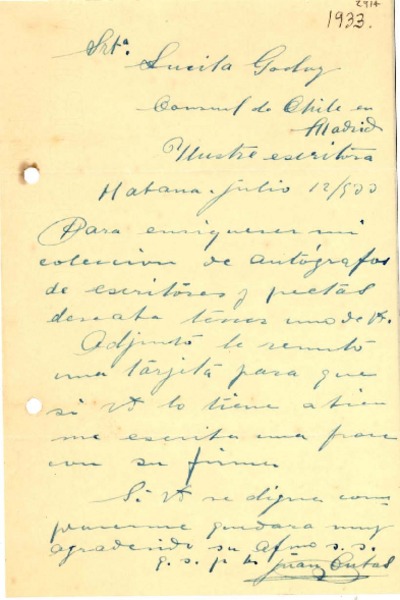 2914
1933.
Srtª
Lucila Godoy
Consul de Chile en
Madrid
Ilustre escritora
Habana. julio 12/933
Para enriquecer mi
coleccion de autógrafos
de escritores y poetas
deseaba tener uno de Vd.
Adjunto le remito
una tarjita para que
si Vd lo tiene a bien
me escriba una frase
con su firma
Si Vd se digna com
placerme quedara muy
agradecido su afmo s.s.
q. s. p. b. Juan